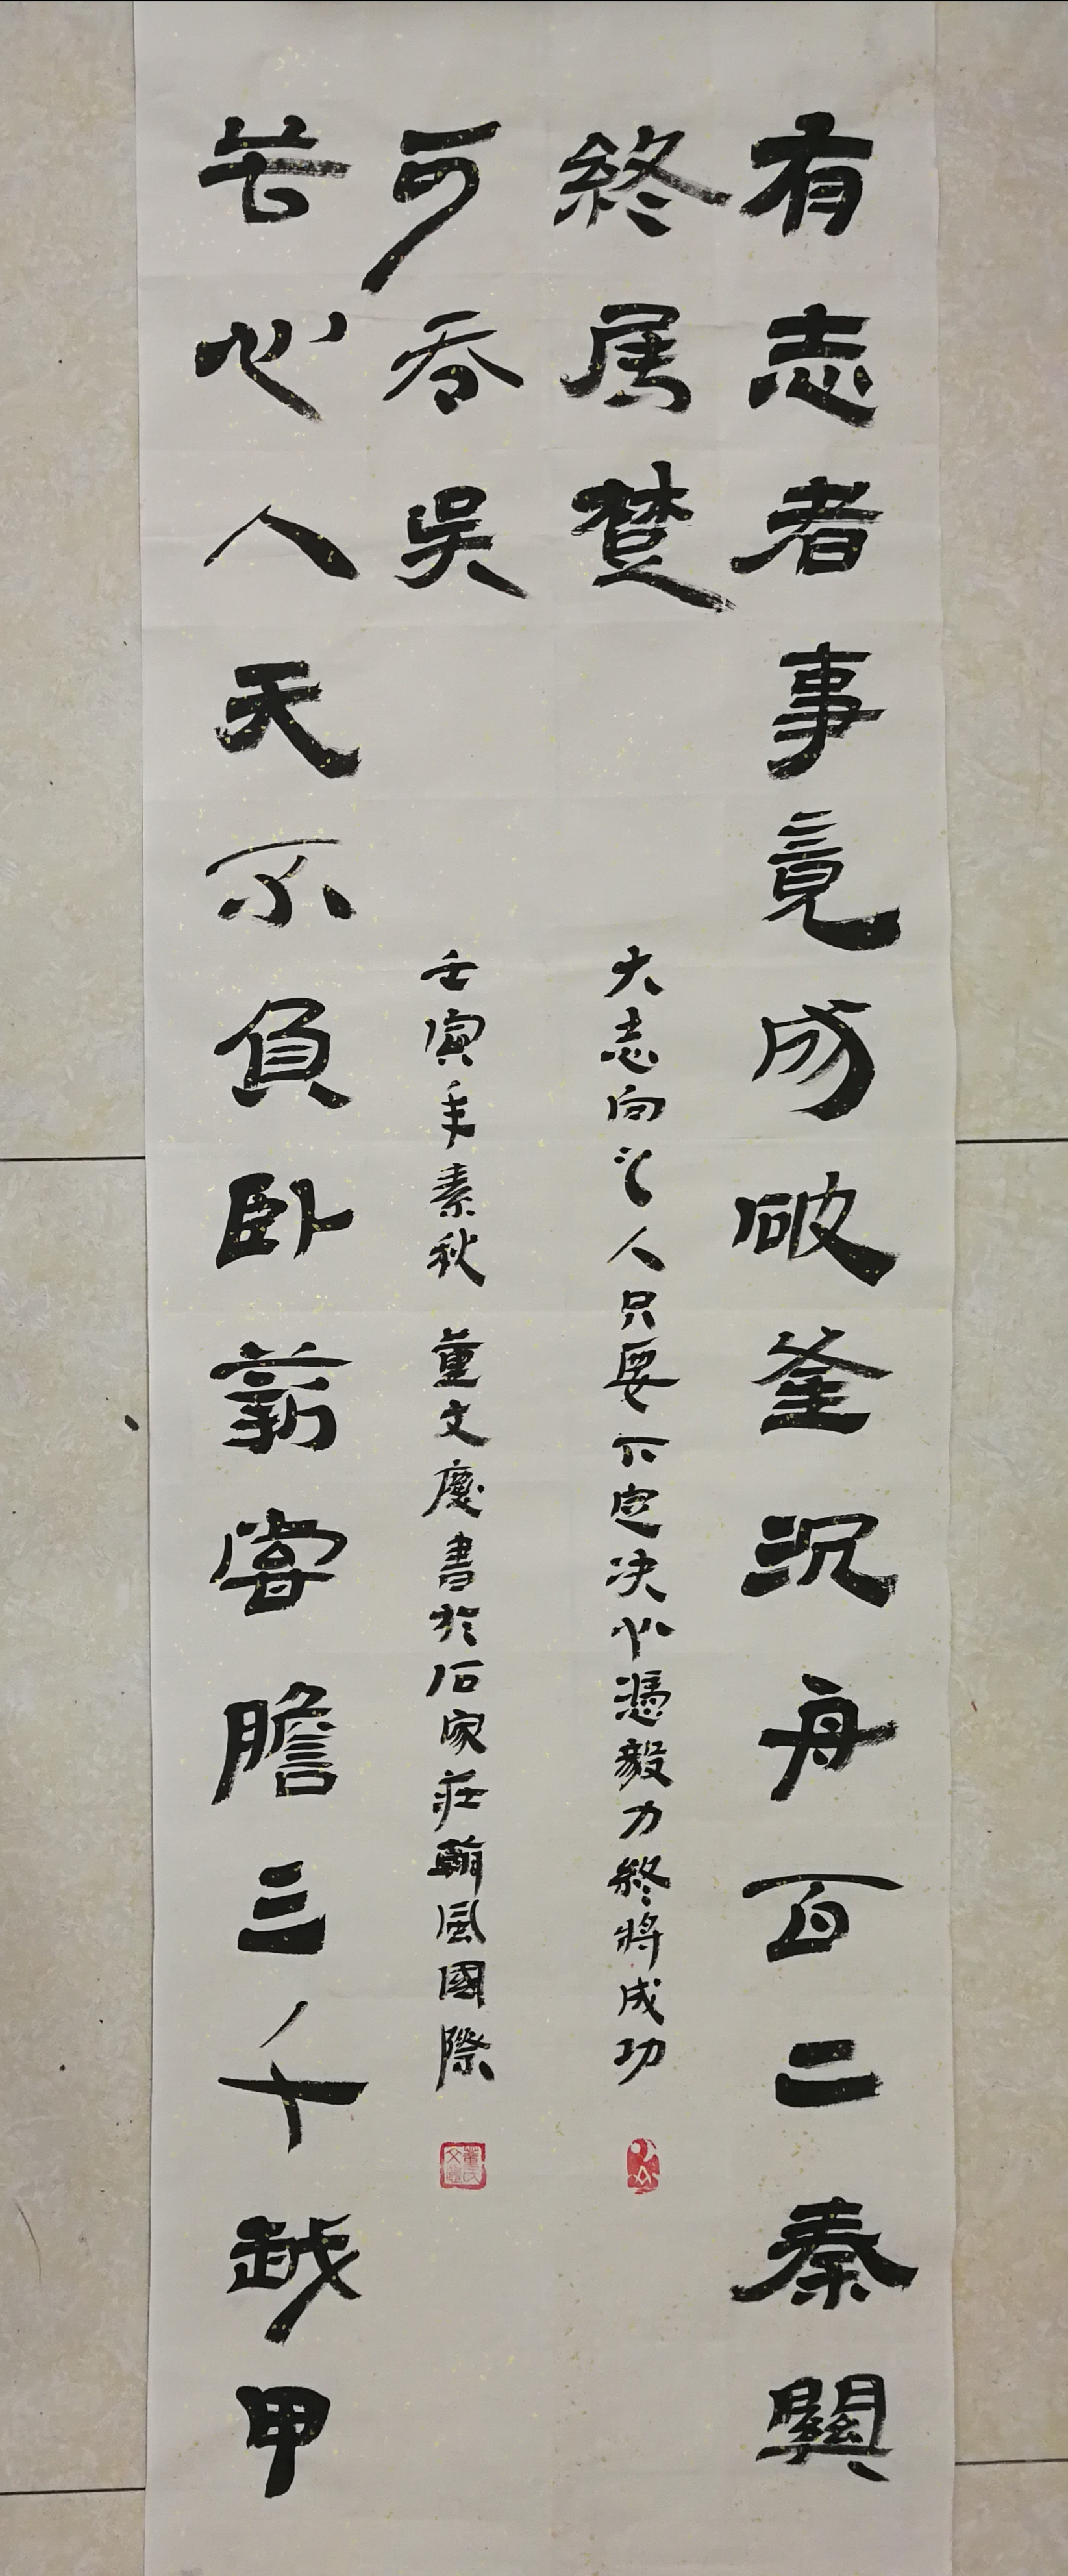 有志者事竟成破釜沉舟百二秦關
終属楚
苦心人天不負卧薪嘗膽三千越甲
可吞吴
大志向之人只要下定决心憑毅力終將成功
壬寅年素秋 董文慶書於石家莊翰風國際